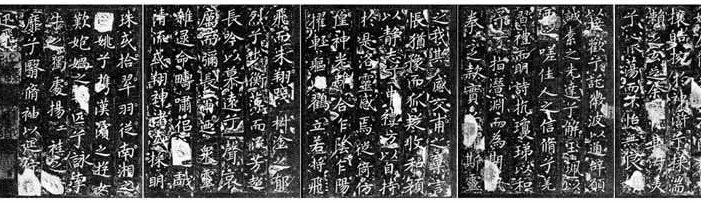 攘皓腕於神滸兮采湍
瀨之玄芝余情悅其淑美
兮心振蕩而不怡無良
以接歡兮託微波以通辭願
誠素之先達兮解玉珮以
要之嗟佳人之信脩兮羌
習禮而明詩抗瓊珶以和
予兮指潛淵而為期
眷眷之款實兮懼斯靈
之我欺感交甫之棄言
悵猶豫而狐疑收和顏
以靜志兮申禮防以自持
於是洛靈感焉徙倚仿
偟神光離合乍陰乍陽
擢輕軀以鶴立若將飛
飛而未翔踐椒塗之郁
烈兮步蘅薄而流芳超
長吟以慕遠兮聲哀
厲而彌長爾迺衆靈
雜遝命疇嘯侶或戲
清流或翔神渚或采明
珠或拾翠羽從南湘之
二姚兮攜漢濱之游女
歎匏媧之無匹兮詠牽
牛之獨處揚輕袿之
靡兮翳脩袖以延佇
迅飛